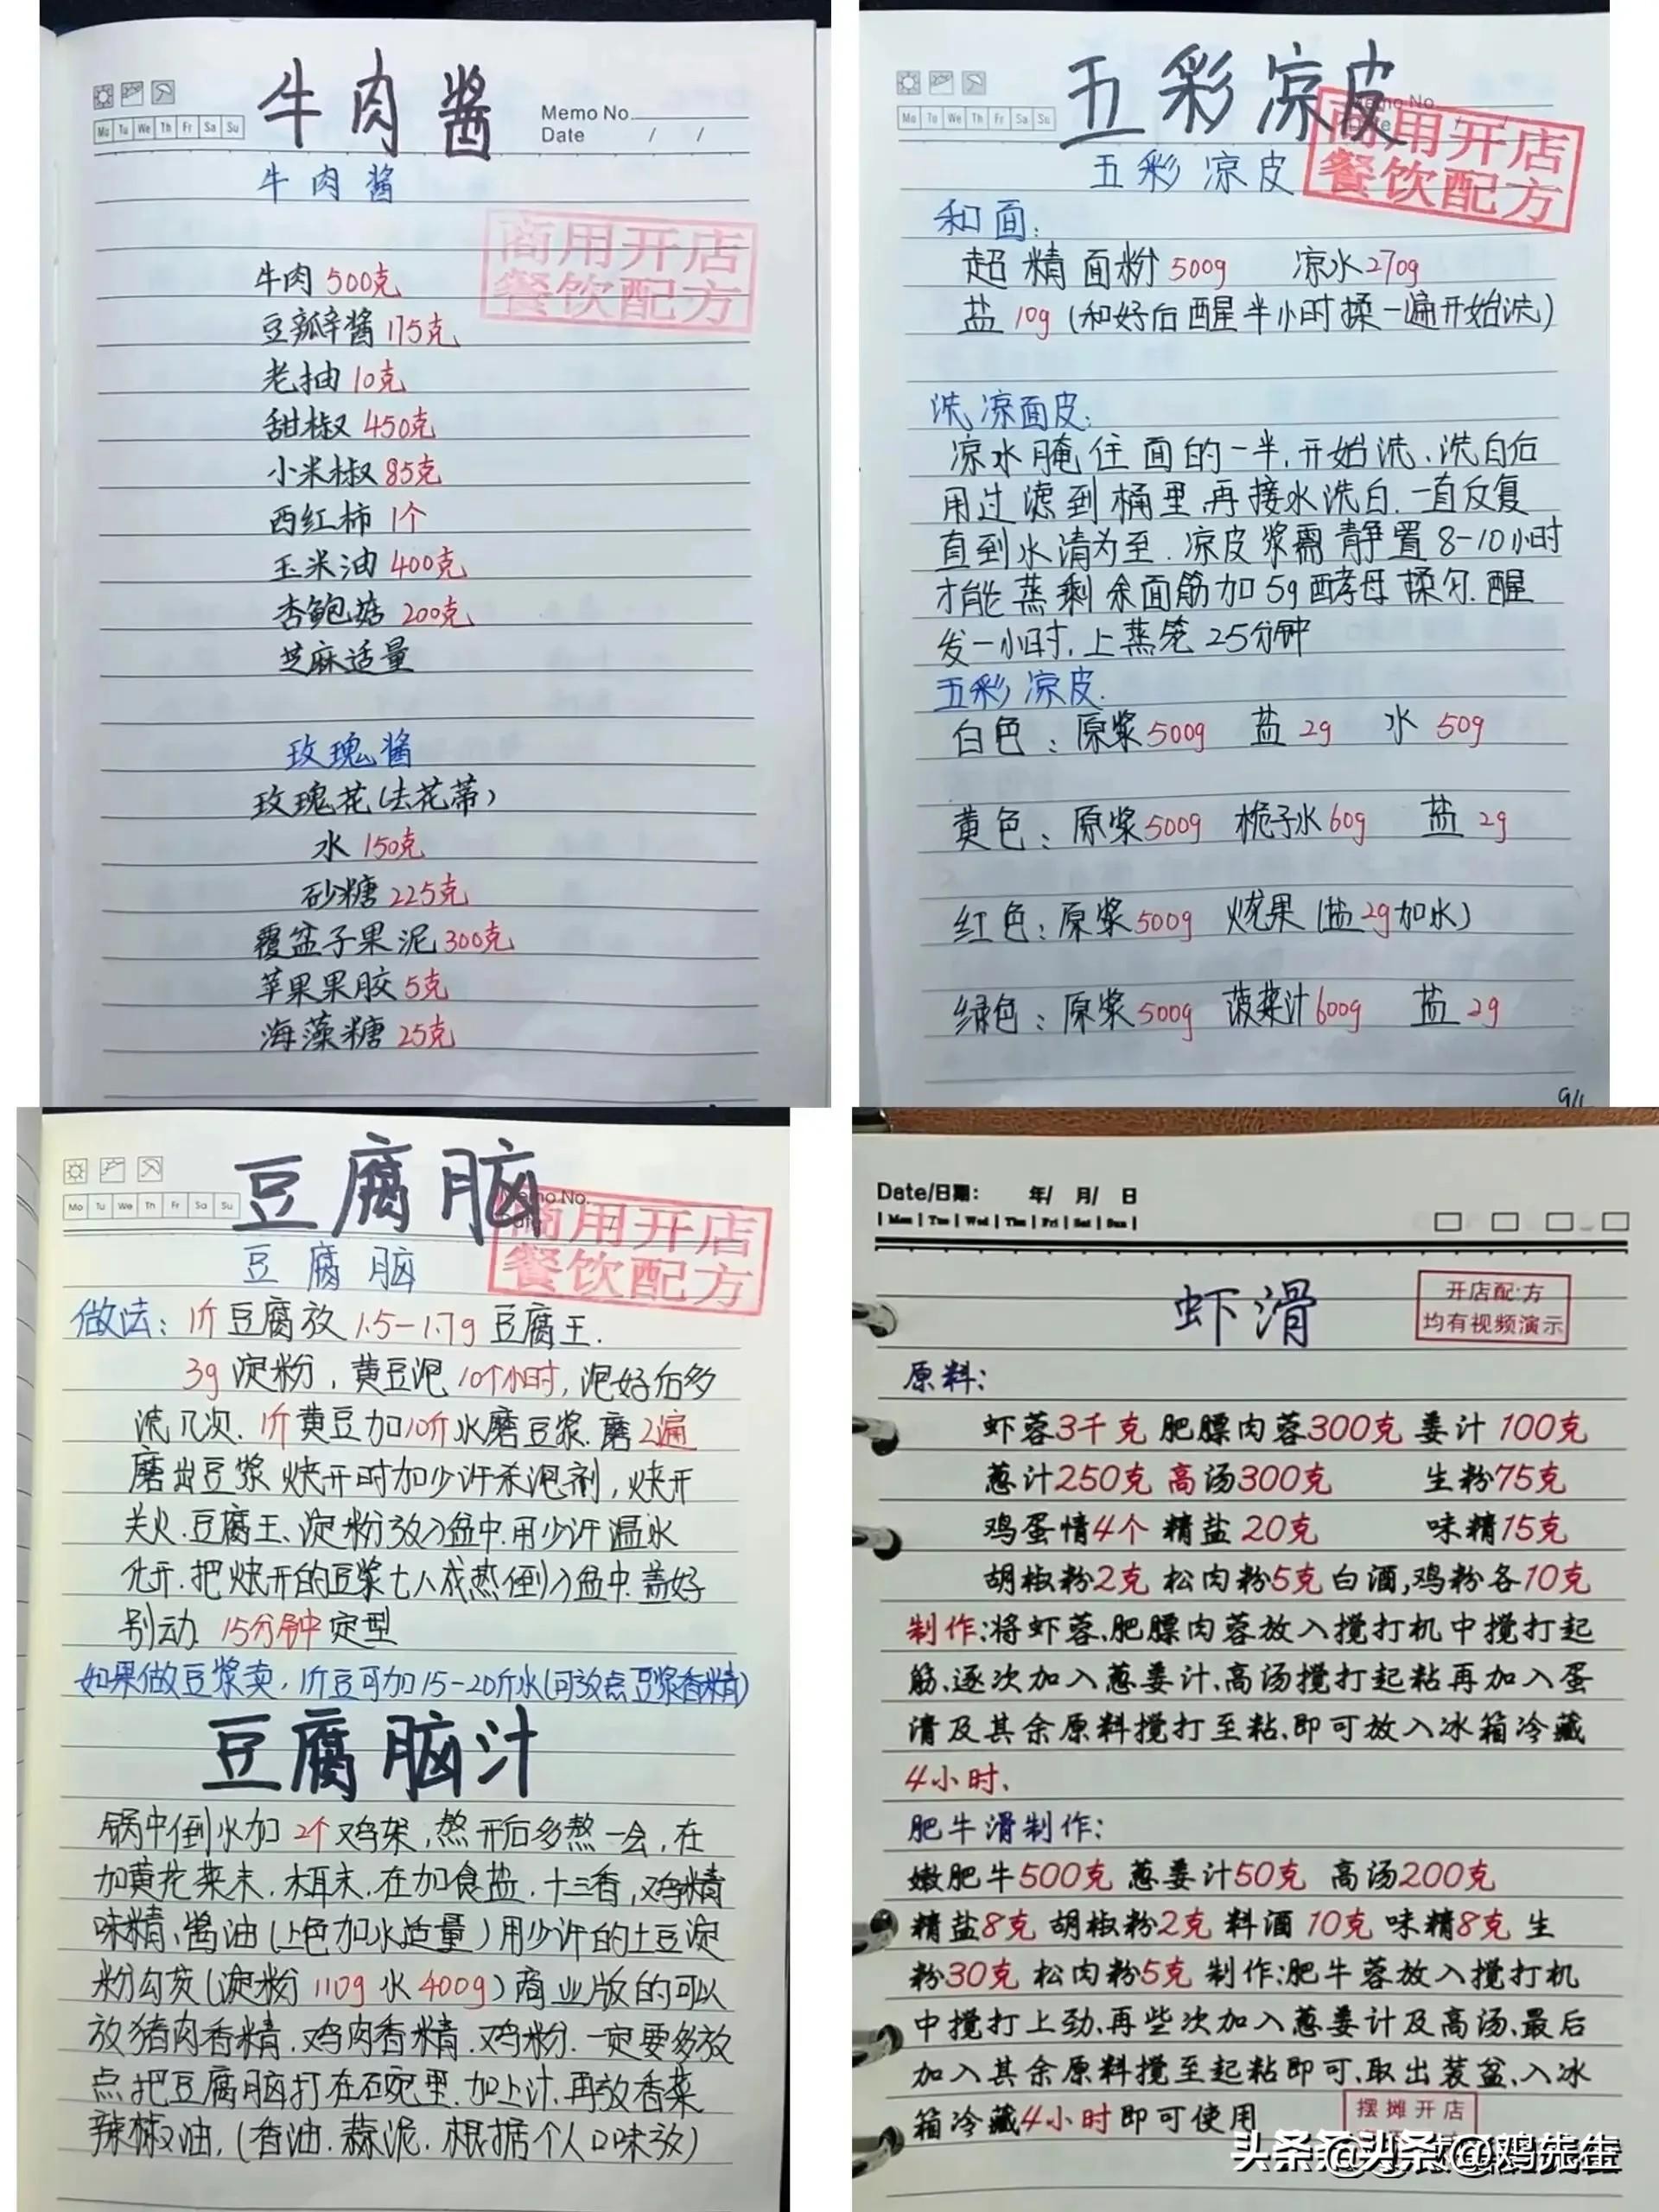 牛肉酱
Memo No.
Mo Tu We Th Fr Sa Su
Date / /
牛肉酱
商用开店
餐饮配方
牛肉 500克
豆瓣酱 175克
老抽 10克
甜椒 450克
小米椒 85克
西红柿 1个
玉米油 400克
杏鲍菇 200克
芝麻适量
玫瑰酱
玫瑰花(去花蒂)
水 150克
砂糖 225克
覆盆子果泥 300克
苹果果胶 5克
海藻糖 25克
五彩凉皮
Memo No.
Mo Tu We Th Fr Sa Su
五彩凉皮
商用开店
餐饮配方
和面:
超精面粉 500g 凉水 270g
盐 10g (和好后醒半小时揉一遍开始洗)
洗凉面皮:
凉水腌住面的一半,开始洗、洗白后
用过滤到桶里,再接水洗白.一直反复
直到水清为至.凉皮浆需静置8-10小时
才能蒸剩余面筋加5g酵母揉匀.醒
发一小时,上蒸笼25分钟
五彩凉皮.
白色:原浆500g 盐 2g 水 50g
黄色:原浆500g 栀子水60g 盐 2g
红色:原浆500g 火龙果(盐2g加水)
绿色:原浆500g 菠菜汁600g 盐 2g
豆腐脑
Memo No.
Mo Tu We Th Fr Sa Su
豆腐脑
商用开店
餐饮配方
做法:1斤豆腐放1.5-1.7g豆腐王.
3g淀粉,黄豆泡10个小时,泡好后多
洗几次.1斤黄豆加10斤水磨豆浆.磨2遍
磨出豆浆烧开时加少许杀泡剂,烧开
关火.豆腐王、淀粉放入盆中.用少许温水
化开.把烧开的豆浆七八成热倒入盆中.盖好
别动.15分钟定型
如果做豆浆卖,1斤豆可加15-20斤水(可放点豆浆香精)
豆腐脑汁
锅中倒水加2个鸡架,熬开后多熬一会,在
加黄花菜末,木耳末,在加食盐,十三香,鸡精
味精、酱油(上色加水适量)用少许的土豆淀
粉勾芡(淀粉110g水400g)商业版的可以
放猪肉香精.鸡肉香精.鸡粉.一定要多放
点把豆腐脑打在石碗里.加上汁,再放香菜
辣椒油,(香油.蒜泥.根据个人口味放)
Date/日期: 年/ 月/ 日
Mon Tue Wed Thu Fri Sat Sun
虾滑
开店配方
均有视频演示
原料:
虾蓉3千克 肥膘肉蓉300克 姜汁 100克
葱汁250克 高汤300克 生粉75克
鸡蛋情4个 精盐 20克 味精15克
胡椒粉2克 松肉粉5克 白酒,鸡粉各10克
制作:将虾蓉、肥膘肉蓉放入搅打机中搅打起
筋、逐次加入葱姜汁、高汤搅打起粘再加入蛋
清及其余原料搅打至粘、即可放入冰箱冷藏
4小时、
肥牛滑制作:
嫩肥牛500克 葱姜汁50克 高汤200克
精盐8克 胡椒粉2克 料酒 10克 味精8克 生
粉30克 松肉粉5克 制作:肥牛蓉放入搅打机
中搅打上劲、再些次加入葱姜计及高汤、最后
加入其余原料搅至起粘即可、取出装盆、入冰
箱冷藏4小时即可使用
摆摊开店
头条@头条@鸡先生